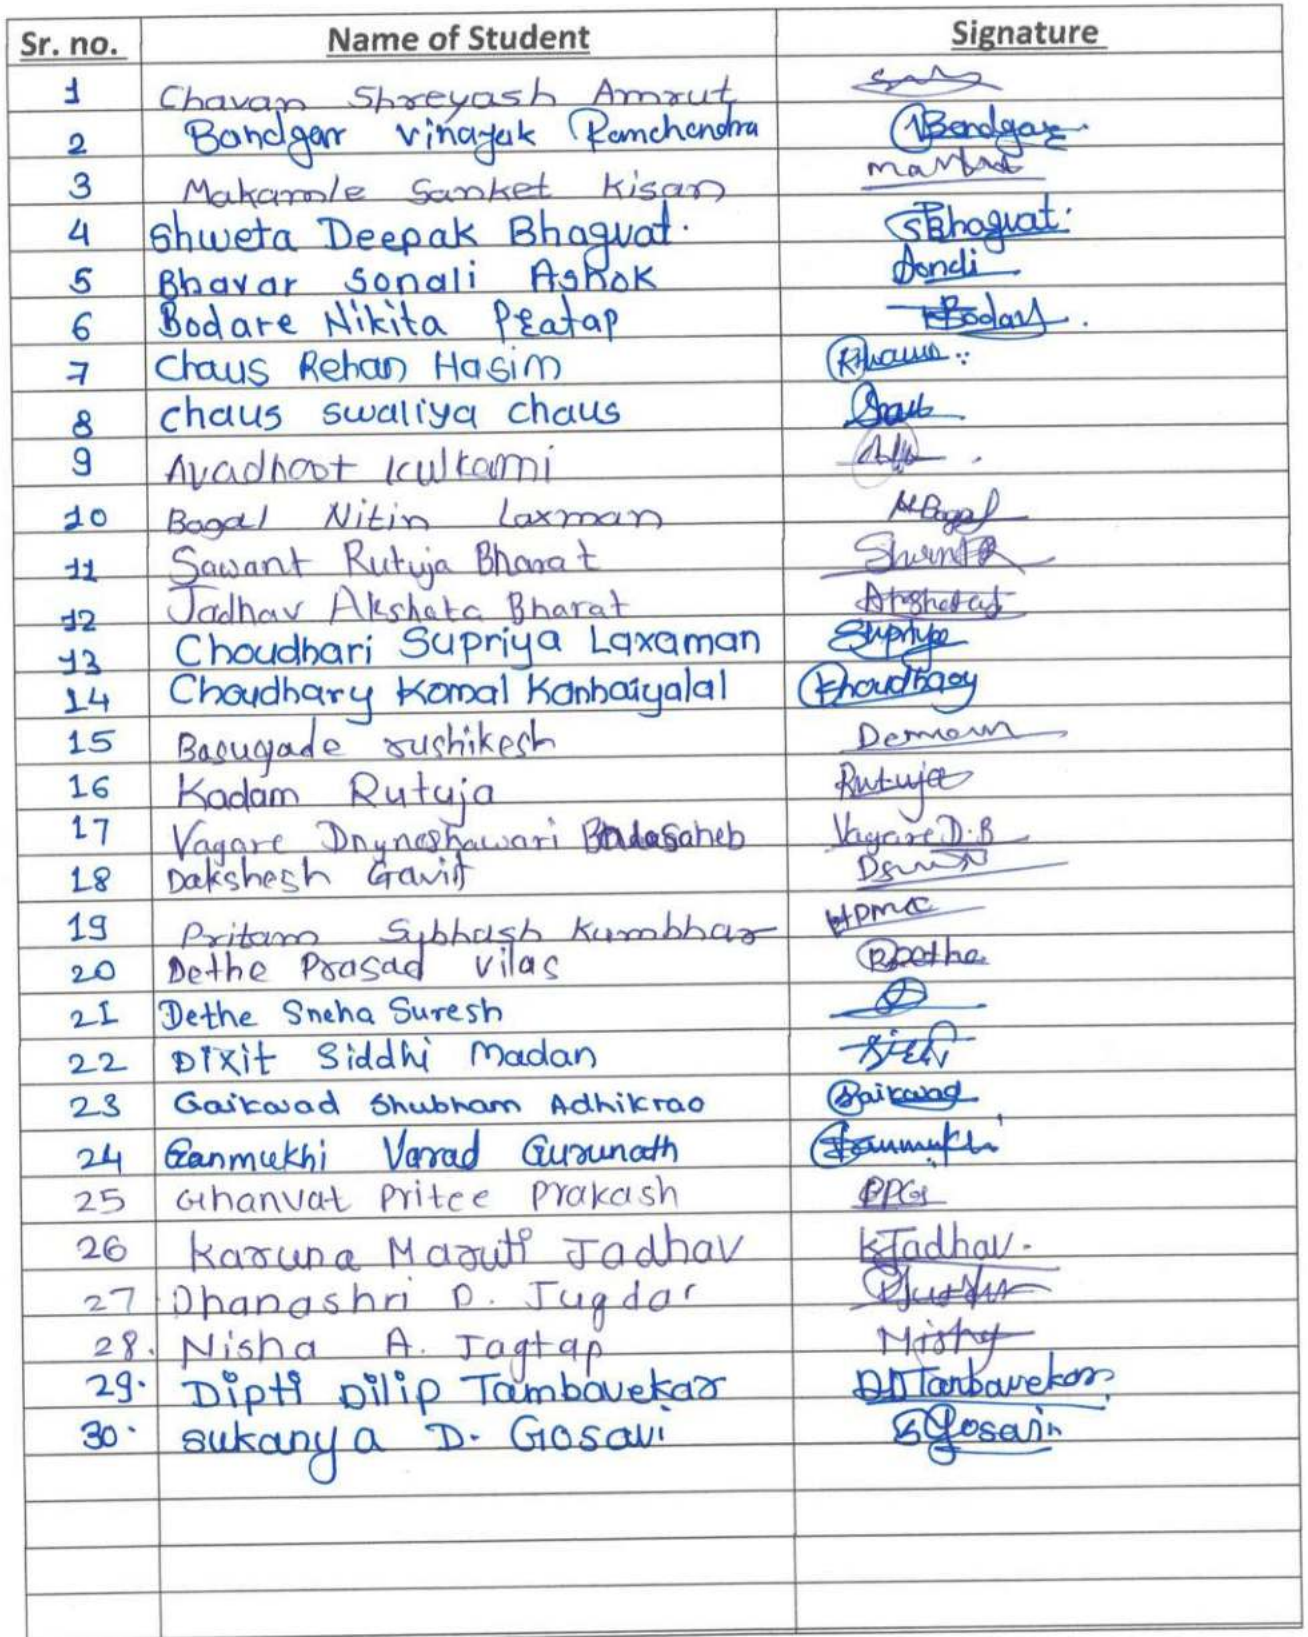 Sr. no. Name of Student Signature
1 Chavan Shreyash Amrut
2 Bandgar Vinayak Ramchandra Bandgar
3 Makamle Sanket Kisan
4 Shweta Deepak Bhaguat. SBhaguat.
5 Bhavar Sonali Ashok
6 Bodare Nikita Pratap
7 Chaus Rehan Hasim
8 Chaus swaliya chaus
9 Avadhoot Kulkarni
10 Bagal Nitin Laxman NBagal
11 Sawant Rutuja Bharat
12 Jadhav Akshata Bharat
13 Choudhari Supriya Laxaman Supriya
14 Choudhary Komal Kanhaiyalal Khoudhary
15 Basugade rushikesh
16 Kadam Rutuja Rutuja
17 Vagare Dnyneshawari Badasaheb Vagare D.B
18 Dakshesh Gavit
19 Pritam Subhash Kumbhar
20 Dethe Prasad Vilas
21 Dethe Sneha Suresh
22 Dixit Siddhi Madan
23 Gaikwad Shubham Adhikrao Gaikwad
24 Ganmukhi Varad Gurunath Ganmukhi
25 Ghanvat Pritee Prakash PPG
26 Karuna Maruti Jadhav KJadhav.
27 Dhanashri D. Jugdar
28. Nisha A. Jagtap
29. Dipti Dilip Tambavekar DDTambavekar
30. Sukanya D. Gosavi SGosavi